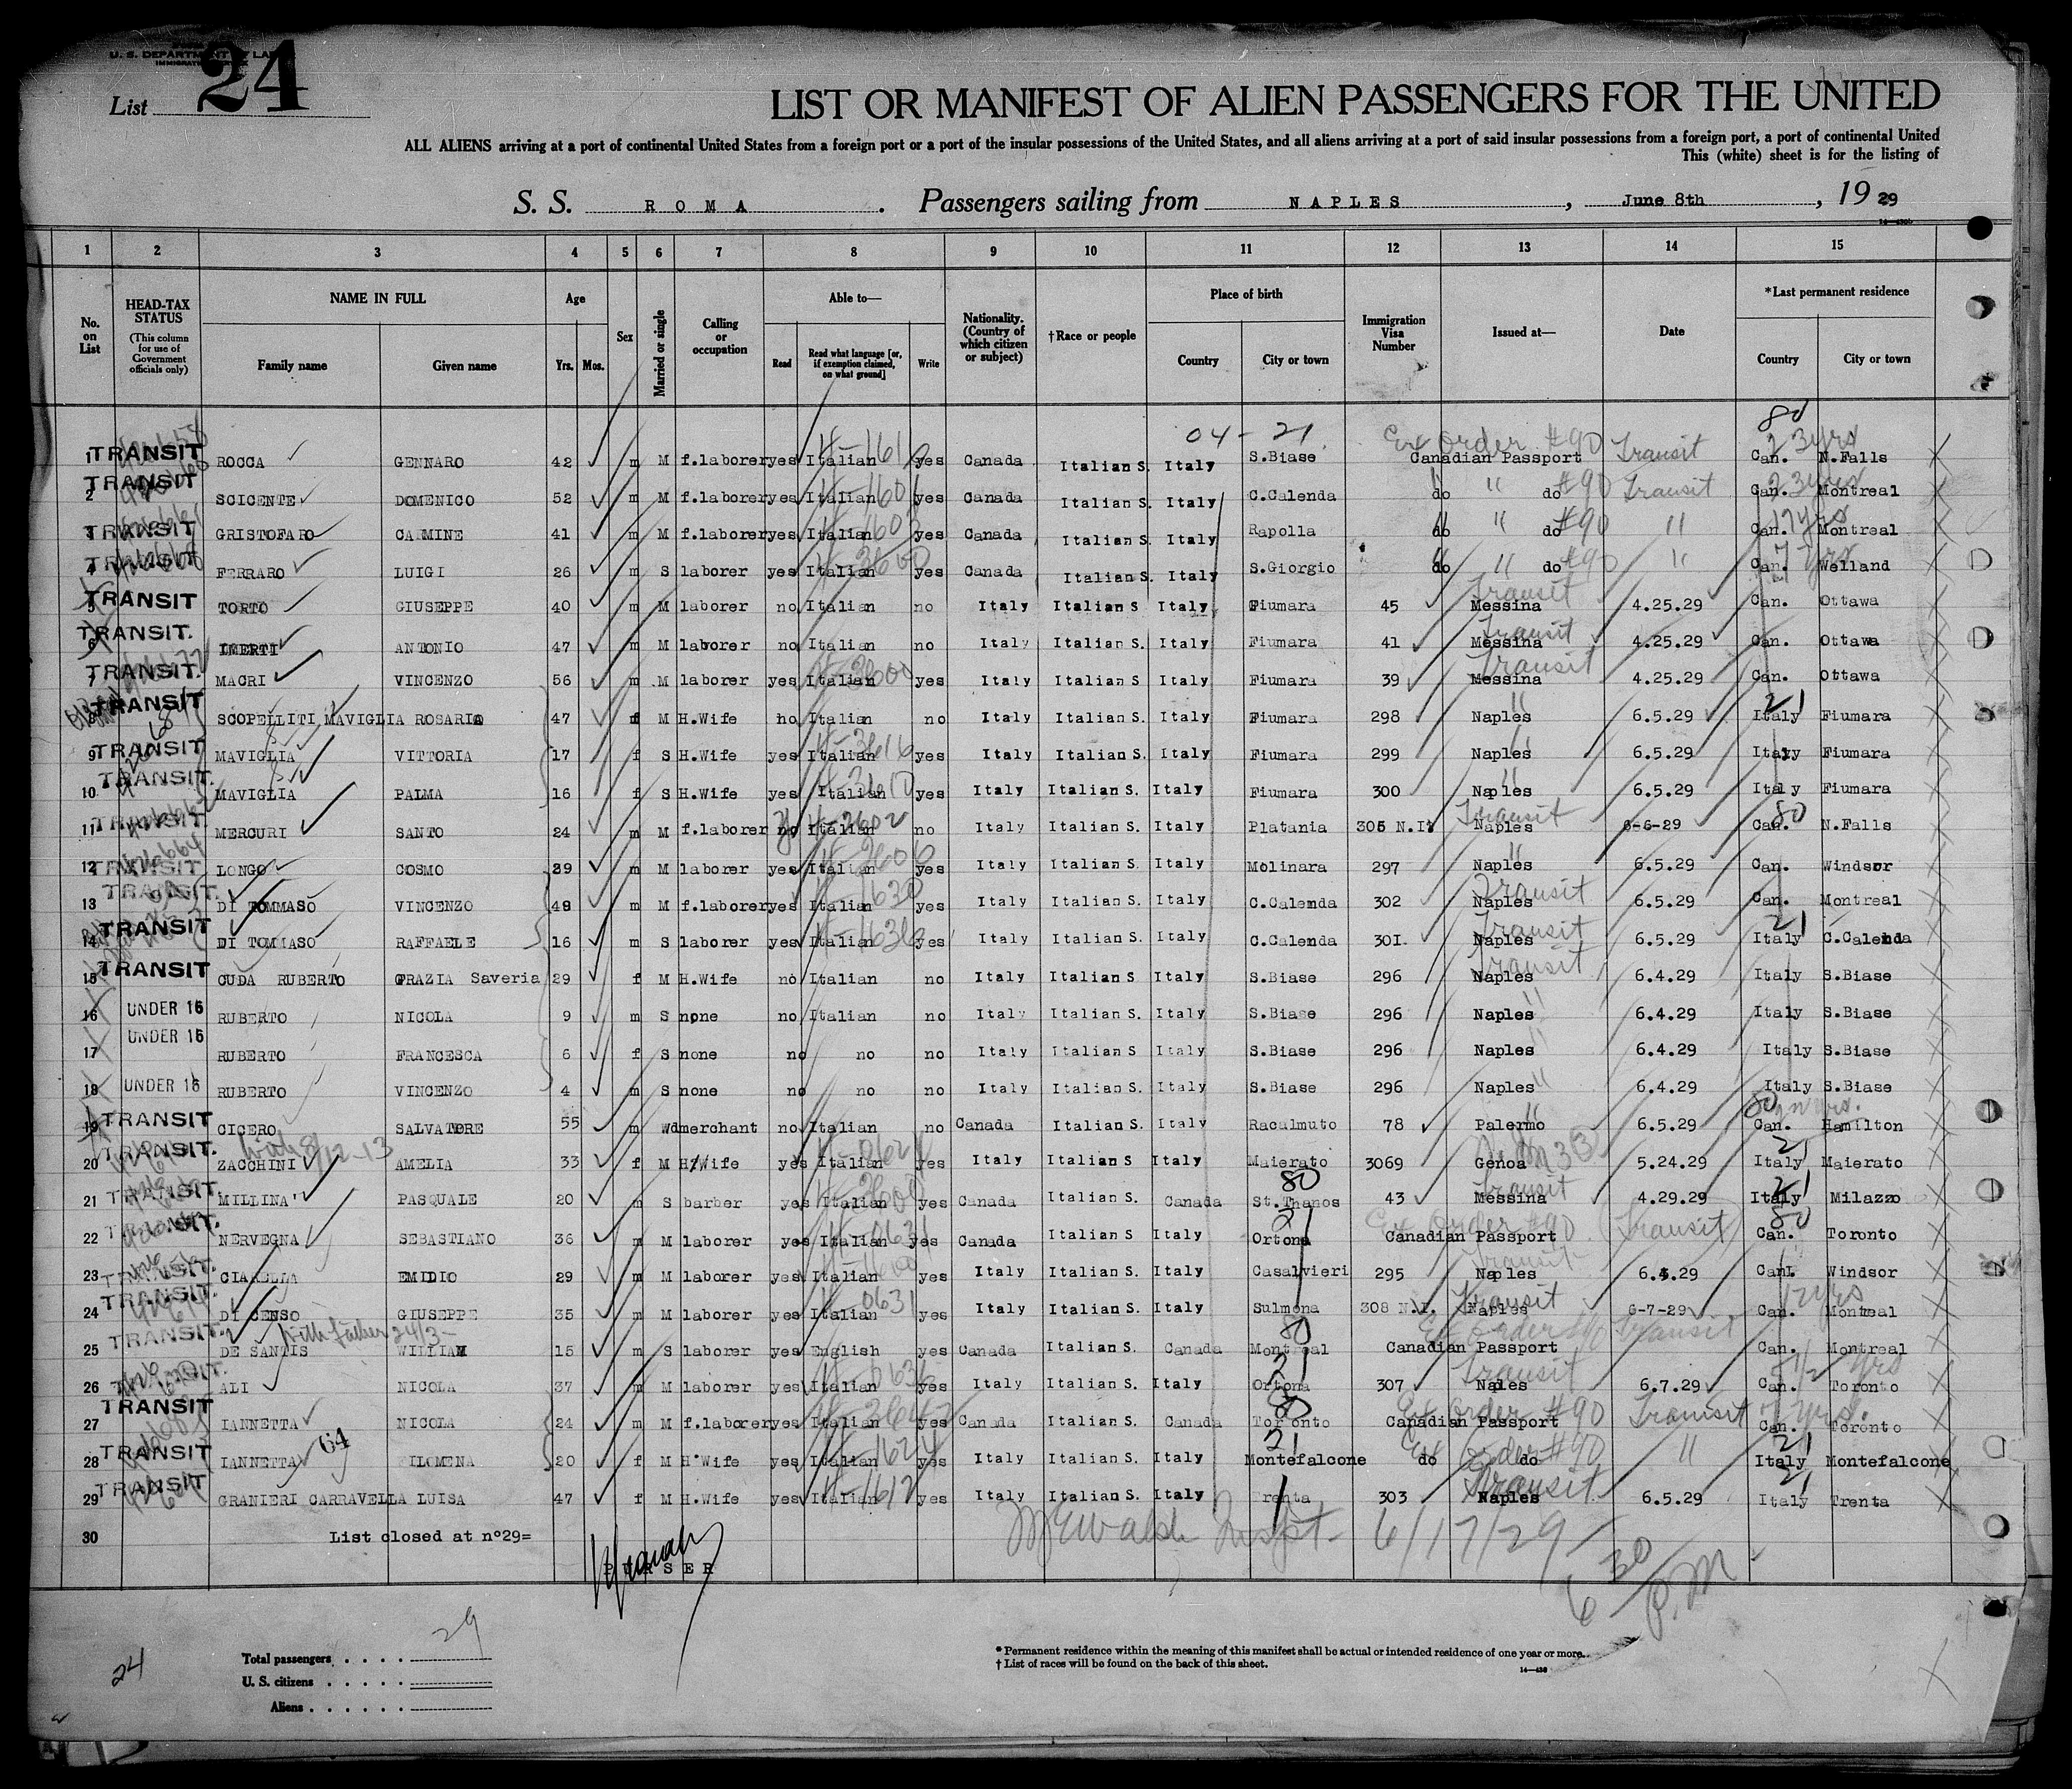 U. S. DEPARTMENT
List 24
LIST OR MANIFEST OF ALIEN PASSENGERS FOR THE UNITED
ALL ALIENS arriving at a port of continental United States from a foreign port or a port of the insular possessions of the United States, and all aliens arriving at a port of said insular possessions from a foreign port, a port of continental United
This (white) sheet is for the listing of
S. S. ROMA. Passengers sailing from NAPLES, June 8th, 1929
1 2 3 4 5 6 7 8 9 10 11 12 13 14 15
No. on List HEAD-TAX STATUS (This column for use of Government officials only) NAME IN FULL Family name Given name Age Yrs. Mos. Sex Married or single Calling or occupation Able to— Read Read what language [or, if exemption claimed, on what ground] Write Nationality. (Country of which citizen or subject) †Race or people Place of birth Country City or town Immigration Visa Number Issued at— Date *Last permanent residence Country City or town
04-21 80
1 TRANSIT ROCCA GENNARO 42 m M f.laborer yes Italian yes Canada Italian S. Italy S.Biase Ex Order #90 Canadian Passport Transit Can. N.Falls 23yrs
2 TRANSIT SCICENTE DOMENICO 52 m M f.laborer yes Italian yes Canada Italian S. Italy C.Calenda do " do #90 Transit Can. Montreal 23yrs
3 TRANSIT GRISTOFARO CARMINE 41 m M f.laborer yes Italian yes Canada Italian S. Italy Rapolla do " do #90 " Can. Montreal 17yrs
4 TRANSIT FERRARO LUIGI 26 m S laborer yes Italian yes Canada Italian S. Italy S.Giorgio do " do #90 " Can. Welland 7yrs
5 TRANSIT TORTO GIUSEPPE 40 m M laborer no Italian no Italy Italian S Italy Fiumara 45 Messina Transit 4.25.29 Can. Ottawa
6 TRANSIT. IMERTI ANTONIO 47 m M laborer no Italian no Italy Italian S. Italy Fiumara 41 Messina Transit 4.25.29 Can. Ottawa
7 TRANSIT. MACRI VINCENZO 56 m M laborer yes Italian yes Italy Italian S. Italy Fiumara 39 Messina Transit 4.25.29 Can. Ottawa
8 TRANSIT SCOPELLITI MAVIGLIA ROSARIA 47 f M H.Wife no Italian no Italy Italian S. Italy Fiumara 298 Naples " 6.5.29 21 Italy Fiumara
9 TRANSIT MAVIGLIA VITTORIA 17 f S H.Wife yes Italian yes Italy Italian S. Italy Fiumara 299 Naples " 6.5.29 Italy Fiumara
10 TRANSIT. MAVIGLIA PALMA 16 f S H.Wife yes Italian yes Italy Italian S. Italy Fiumara 300 Naples " 6.5.29 Italy Fiumara
11 TRANSIT. MERCURI SANTO 24 m M f.laborer no Italian no Italy Italian S. Italy Platania 305 N.I. Naples Transit 6-6-29 80 Can. N.Falls
12 TRANSIT LONGO COSMO 39 m M laborer yes Italian yes Italy Italian S. Italy Molinara 297 Naples " 6.5.29 Can. Windsor
13 TRANSIT. DI TOMMASO VINCENZO 48 m M f.laborer yes Italian yes Italy Italian S. Italy C.Calenda 302 Naples Transit 6.5.29 Can. Montreal
14 TRANSIT DI TOMMASO RAFFAELE 16 m S laborer yes Italian yes Italy Italian S. Italy C.Calenda 301. Naples Transit 6.5.29 21 Italy C.Calenda
15 TRANSIT CUDA RUBERTO GRAZIA Saveria 29 f M H.Wife no Italian no Italy Italian S. Italy S.Biase 296 Naples Transit 6.4.29 Italy S.Biase
16 UNDER 16 RUBERTO NICOLA 9 m S none no Italian no Italy Italian S. Italy S.Biase 296 Naples " 6.4.29 Italy S.Biase
17 UNDER 16 RUBERTO FRANCESCA 6 f S none no no no Italy Italian S Italy S.Biase 296 Naples " 6.4.29 Italy S.Biase
18 UNDER 16 RUBERTO VINCENZO 4 m S none no no no Italy Italian S. Italy S.Biase 296 Naples " 6.4.29 Italy S.Biase
19 TRANSIT CICERO SALVATORE 55 m Wd merchant no Italian no Canada Italian S. Italy Racalmuto 78 Palermo " 6.5.29 80 Can. Hamilton
20 TRANSIT. ZACCHINI AMELIA 33 f M H.Wife yes Italian yes Italy Italian S Italy Maierato 3069 Genoa 5.24.29 21 Italy Maierato
21 TRANSIT. MILLINA' PASQUALE 20 m S barber yes Italian yes Canada Italian S. Canada 80 St.Thanos 43 Messina Transit 4.29.29 21 Italy Milazzo
22 NERVEGNA SEBASTIANO 36 m M laborer yes Italian yes Canada Italian S Italy 21 Ortona Ex Order #90 Canadian Passport (Transit) 80 Can. Toronto
23 TRANSIT. CIARELLI EMIDIO 29 m M laborer yes Italian yes Italy Italian S. Italy Casalvieri 295 Naples Transit 6.4.29 Can. Windsor
24 TRANSIT. DI CENSO GIUSEPPE 35 m M laborer yes Italian yes Italy Italian S. Italy Sulmona 308 N.I. Naples Transit 6-7-29 Can. Montreal
25 TRANSIT. DE SANTIS with father 24/3- WILLIAM 15 m S laborer yes English yes Canada Italian S. Canada 80 Montreal Ex Order #90 Transit Canadian Passport Can. Montreal
26 ALI NICOLA 37 m M laborer yes Italian yes Italy Italian S. Italy 21 Ortona 307 Naples Transit 6.7.29 Can. Toronto
27 TRANSIT IANNETTA NICOLA 24 m M f.laborer yes Italian yes Canada Italian S. Canada 80 Toronto Ex Order #90 Canadian Passport Transit Can. Toronto
28 TRANSIT IANNETTA 64 FILOMENA 20 f M H.Wife yes Italian yes Italy Italian S. Italy 21 Montefalcone do Ex order #90 do " 21 Italy Montefalcone
29 TRANSIT GRANIERI CARRAVELLA LUISA 47 f M H.Wife yes Italian yes Italy Italian S. Italy Trenta 303 Naples Transit 6.5.29 21 Italy Trenta
30 List closed at n°29=
PURSER
6/17/29
6 30 P.M.
29
24
Total passengers
U. S. citizens
Aliens
* Permanent residence within the meaning of this manifest shall be actual or intended residence of one year or more.
† List of races will be found on the back of this sheet.